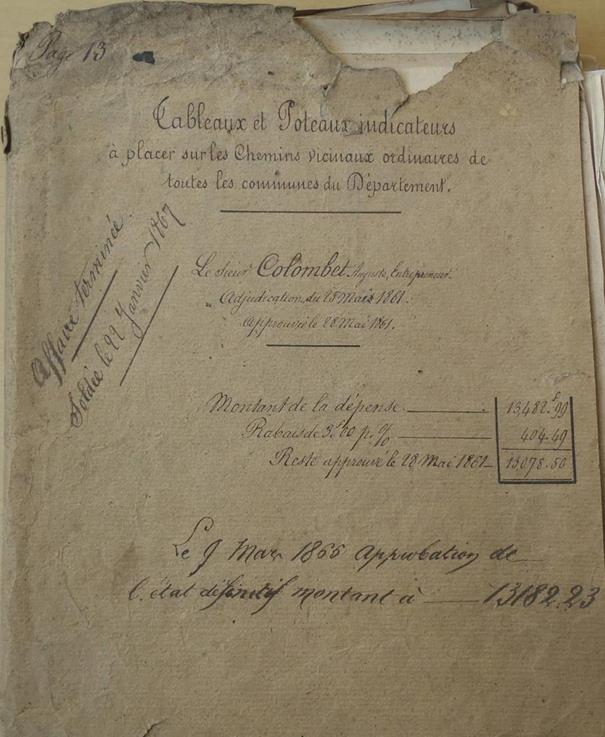 Page 13
Tableaux et Poteaux indicateurs
à placer sur les Chemins vicinaux ordinaires de
toutes les communes du Département.
Affaire terminée.
Soldée le 22 Janvier 1867
Le sieur Colombet Auguste, Entrepreneur.
Adjudication du 28 Mars 1861.
Approuvée le 28 Mai 1861.
Montant de la dépense 13482.f99
Rabais de 3.f00 p.% 404.49
Reste approuvé le 28 Mai 1861 13078.50
Le 9 Mars 1866 Approbation de
l'état définitif montant à 13182.23